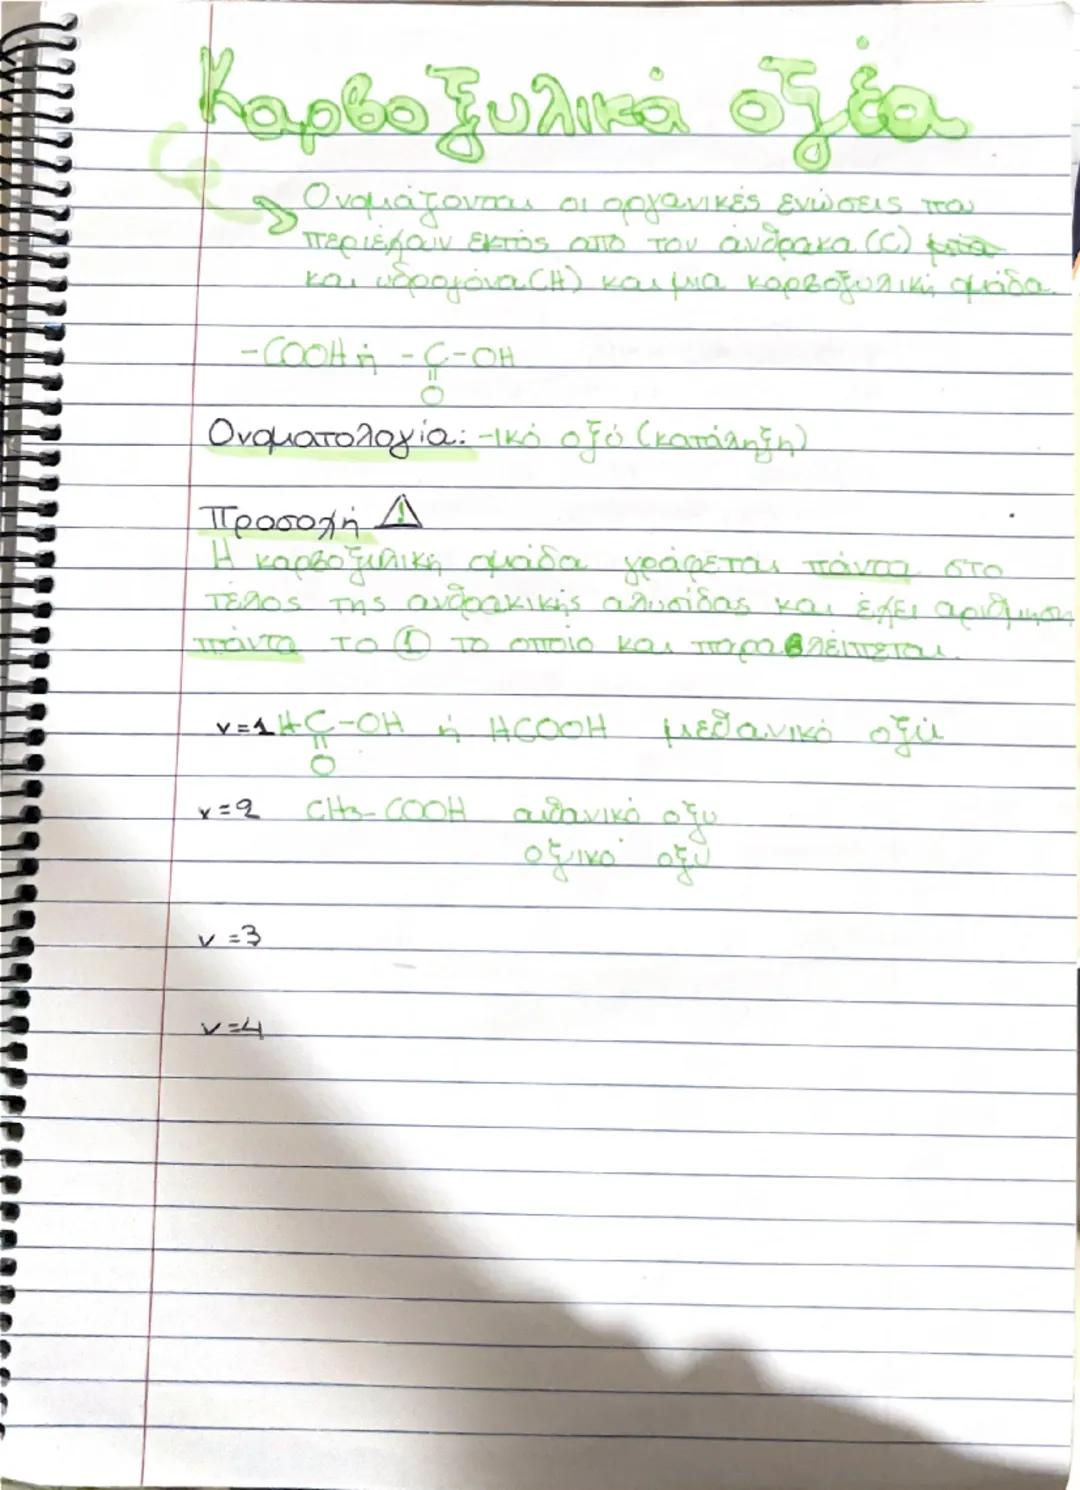 Καρβοξυλικά οξέα
Ονομάζονται οι οργανικές ενώσεις που
περιέχουν εκτός από τον άνθρακα (C) μια
και υδρογόνα (H) και μια καρβοξυλική ομάδα
-COOH ή -C-OH
=
O
Ονοματολογία: -ικό οξύ (κατάληξη)
Προσοχή ⚠
Η καρβοξυλική ομάδα γράφεται πάντα στο
τέλος της ανθρακικής αλυσίδας και έχει αρίθμηση
πάντα το ① το οποίο και παραλείπεται.
ν=1 HC-OH ή HCOOH μεθανικό οξύ
=
O
ν=2 CH3-COOH αιθανικό οξυ
οξικό οξυ
ν=3
ν=4